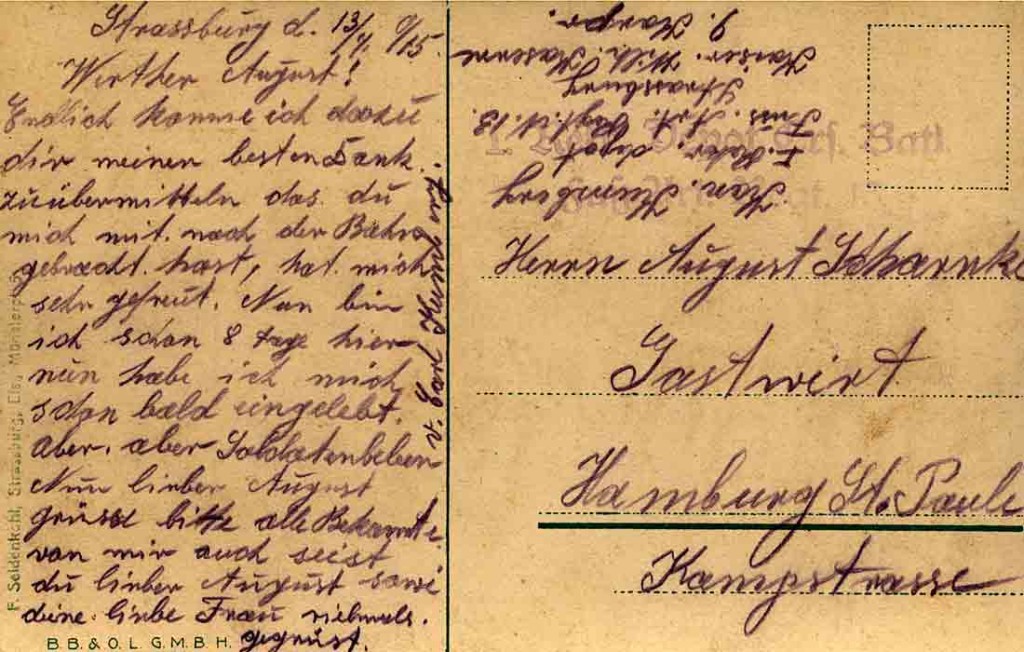 Strassburg d. 13/4. 915
Werther August!
Endlich komme ich dazu
dir meinen besten Dank.
zuübermitteln das. du
mich mit. nach der Bahn
gebracht. hast, hat. mich
sehr gefreut. Nun bin
ich schon 8 tage hier
nun habe ich mich
schon bald eingelebt.
aber. aber Soldatenleben
Nun lieber August
grüsse bitte alle Bekannte.
von mir auch seist
du lieber August sowie
deine liebe Frau vielmals.
gegrüst.
v. Carl
B. B. & O. L. G. M. B. H.
F. Seldenkecht, Strassburg, Els.
Kan.
Strassburg
Kaiser. Wilh. Kaserne
Herrn August Scharnke
Gastwirt
Hamburg St. Pauli
Kampstrasse